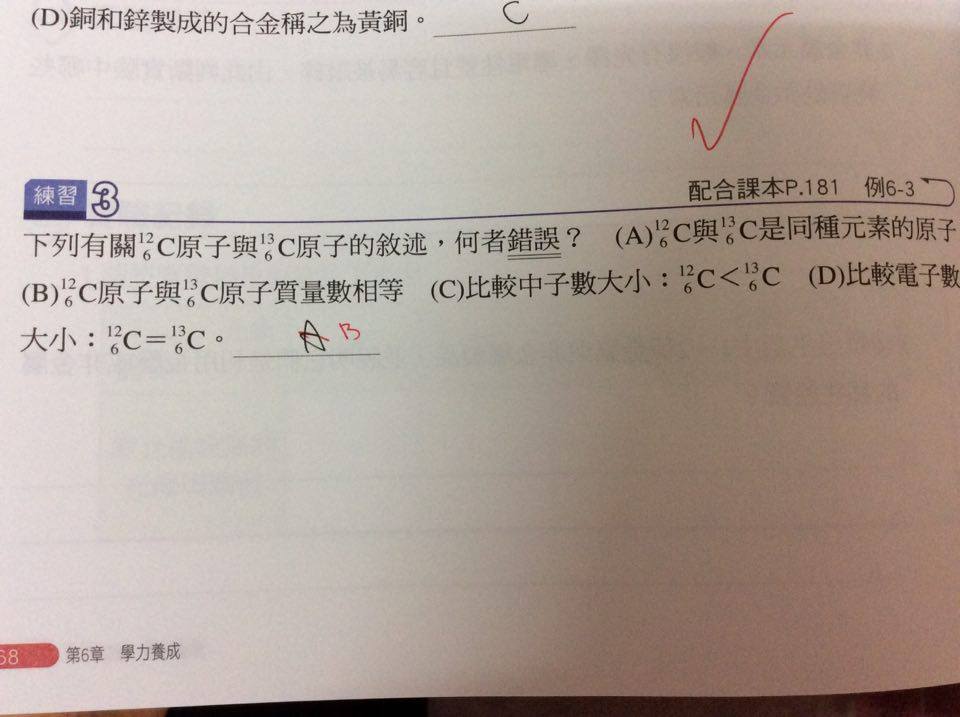 (D)銅和鋅製成的合金稱之為黃銅。 C
練習 3 配合課本P.181 例6-3
下列有關¹²₆C原子與¹³₆C原子的敘述,何者錯誤? (A)¹²₆C與¹³₆C是同種元素的原子
(B)¹²₆C原子與¹³₆C原子質量數相等 (C)比較中子數大小:¹²₆C<¹³₆C (D)比較電子數
大小:¹²₆C=¹³₆C。 A B
68 第6章 學力養成